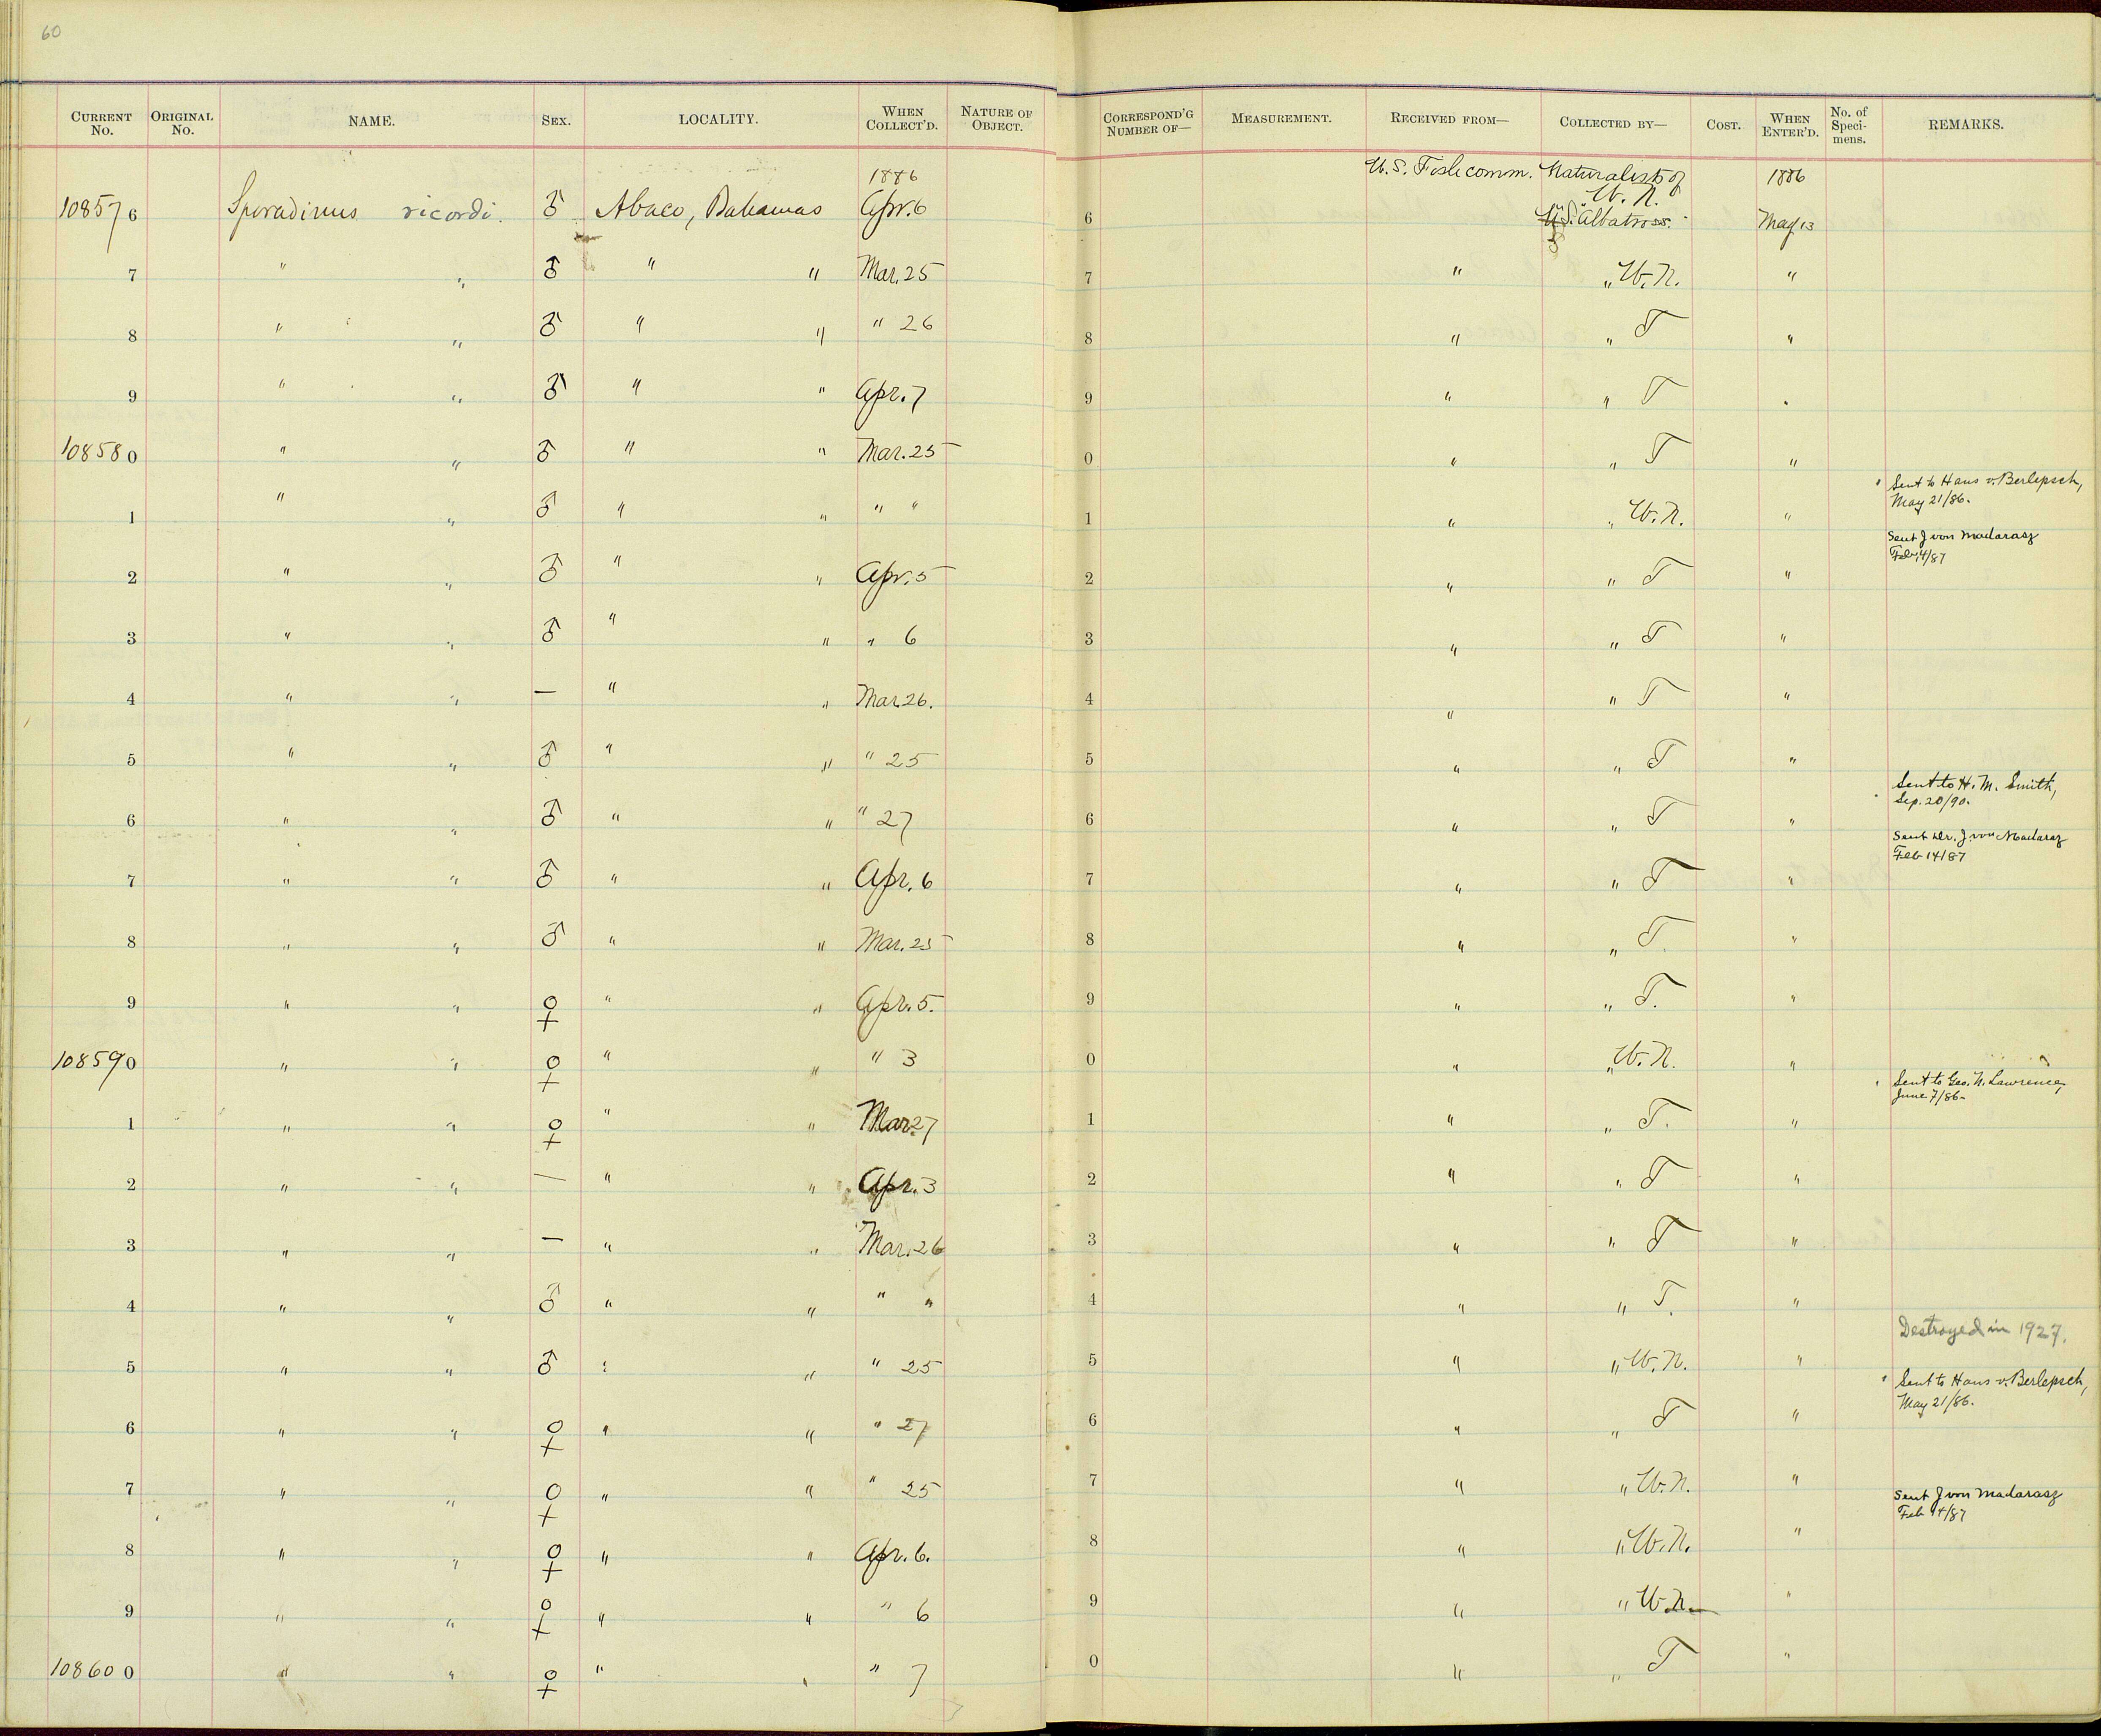 60
CURRENT No. ORIGINAL No. NAME. SEX. LOCALITY. WHEN COLLECT'D. NATURE OF OBJECT. CORRESPOND'G NUMBER OF— MEASUREMENT. RECEIVED FROM— COLLECTED BY— COST. WHEN ENTER'D. No. of Speci-mens. REMARKS.
1886 U.S. Fish comm. Naturalists of 1886
W. N.
108576 Sporadinus ricordi. ♂ Abaco, Bahamas Apr. 6 6 U.S. Albatross. May 13
7 " " ♂ " " Mar. 25 7 " " W. N. "
8 " " ♂ " " " 26 8 " " T "
9 " " ♂ " " Apr. 7 9 " " T "
108580 " " ♂ " " Mar. 25 0 " " T "
1 " " ♂ " " " " 1 " " W. N. " Sent to Hans v. Berlepsch,
May 21/86.
2 " " ♂ " " Apr. 5 2 " " T " Sent J von Madarasz
Feb 14/87
3 " " ♂ " " " 6 3 " " T "
4 " " — " " Mar 26. 4 " " T "
5 " " ♂ " " " 25 5 " " T "
6 " " ♂ " " " 27 6 " " T " Sent to H. M. Smith,
Sep. 20/90.
7 " " ♂ " " Apr. 6 7 " " T " Sent Dr. J. von Madarasz
Feb 14/87
8 " " ♂ " " Mar. 25 8 " " T. "
9 " " ♀ " " Apr. 5. 9 " " T. "
108590 " " ♀ " " " 3 0 " " W. N. "
1 " " ♀ " " Mar. 27 1 " " T. " Sent to Geo. N. Lawrence,
June 7/86-
2 " " — " " Apr. 3 2 " " T "
3 " " — " " Mar. 26 3 " " T "
4 " " ♂ " " " " 4 " " T. "
5 " " ♂ " " " 25 5 " " W. N. " Destroyed in 1927.
6 " " ♀ " " " 27 6 " " T " Sent to Hans v. Berlepsch,
May 21/86.
7 " " ♀ " " " 25 7 " " W. N. "
8 " " ♀ " " Apr. 6. 8 " " W. N. " Sent J von Madarasz
Feb 14/87
9 " " ♀ " " " 6 9 " " W. N. "
108600 " " ♀ " " " 7 0 " " T "